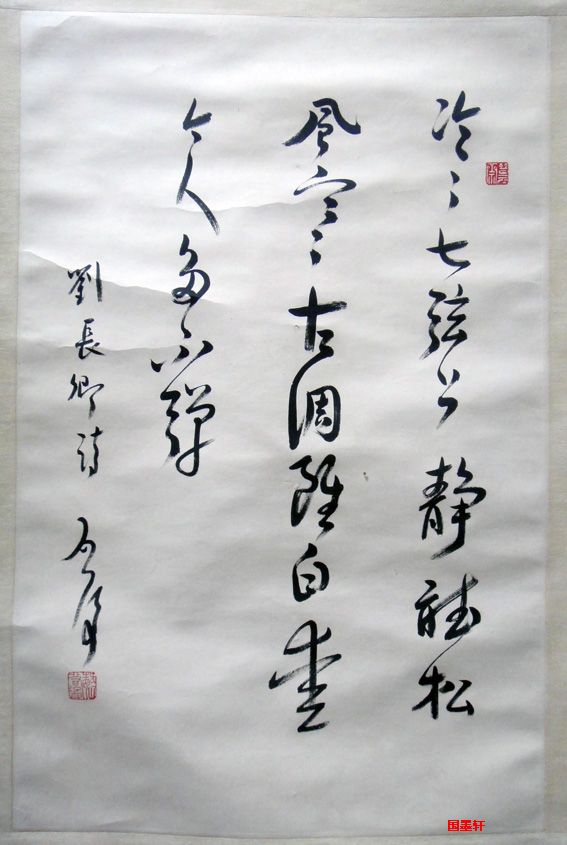 泠々七弦上靜聽松
風寒古調雖自愛
今人多不彈
劉長卿詩
国墨轩